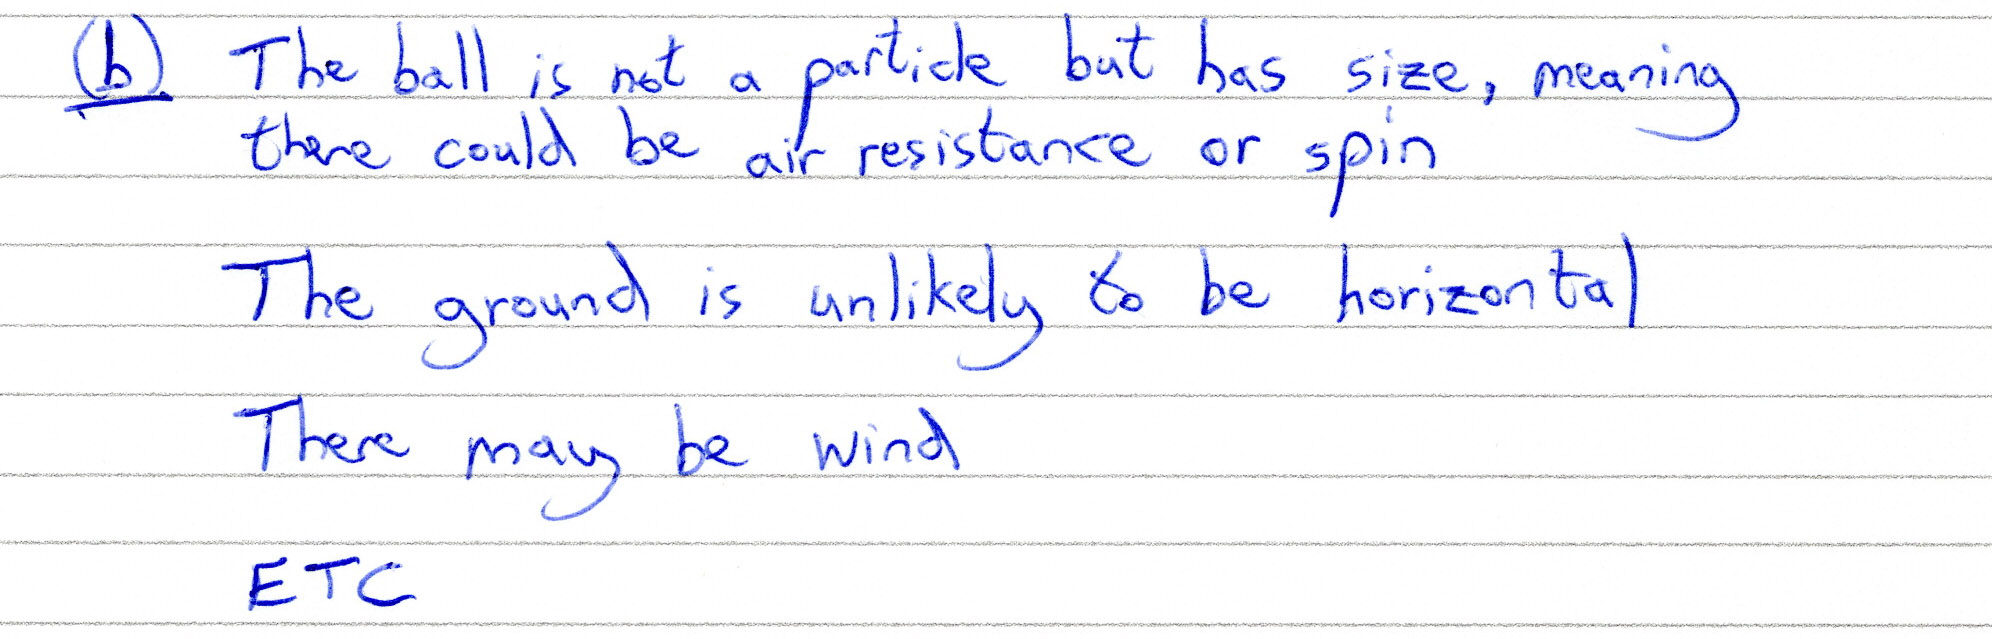 (b) The ball is not a particle but has size, meaning
there could be air resistance or spin
The ground is unlikely to be horizontal
There may be wind
ETC